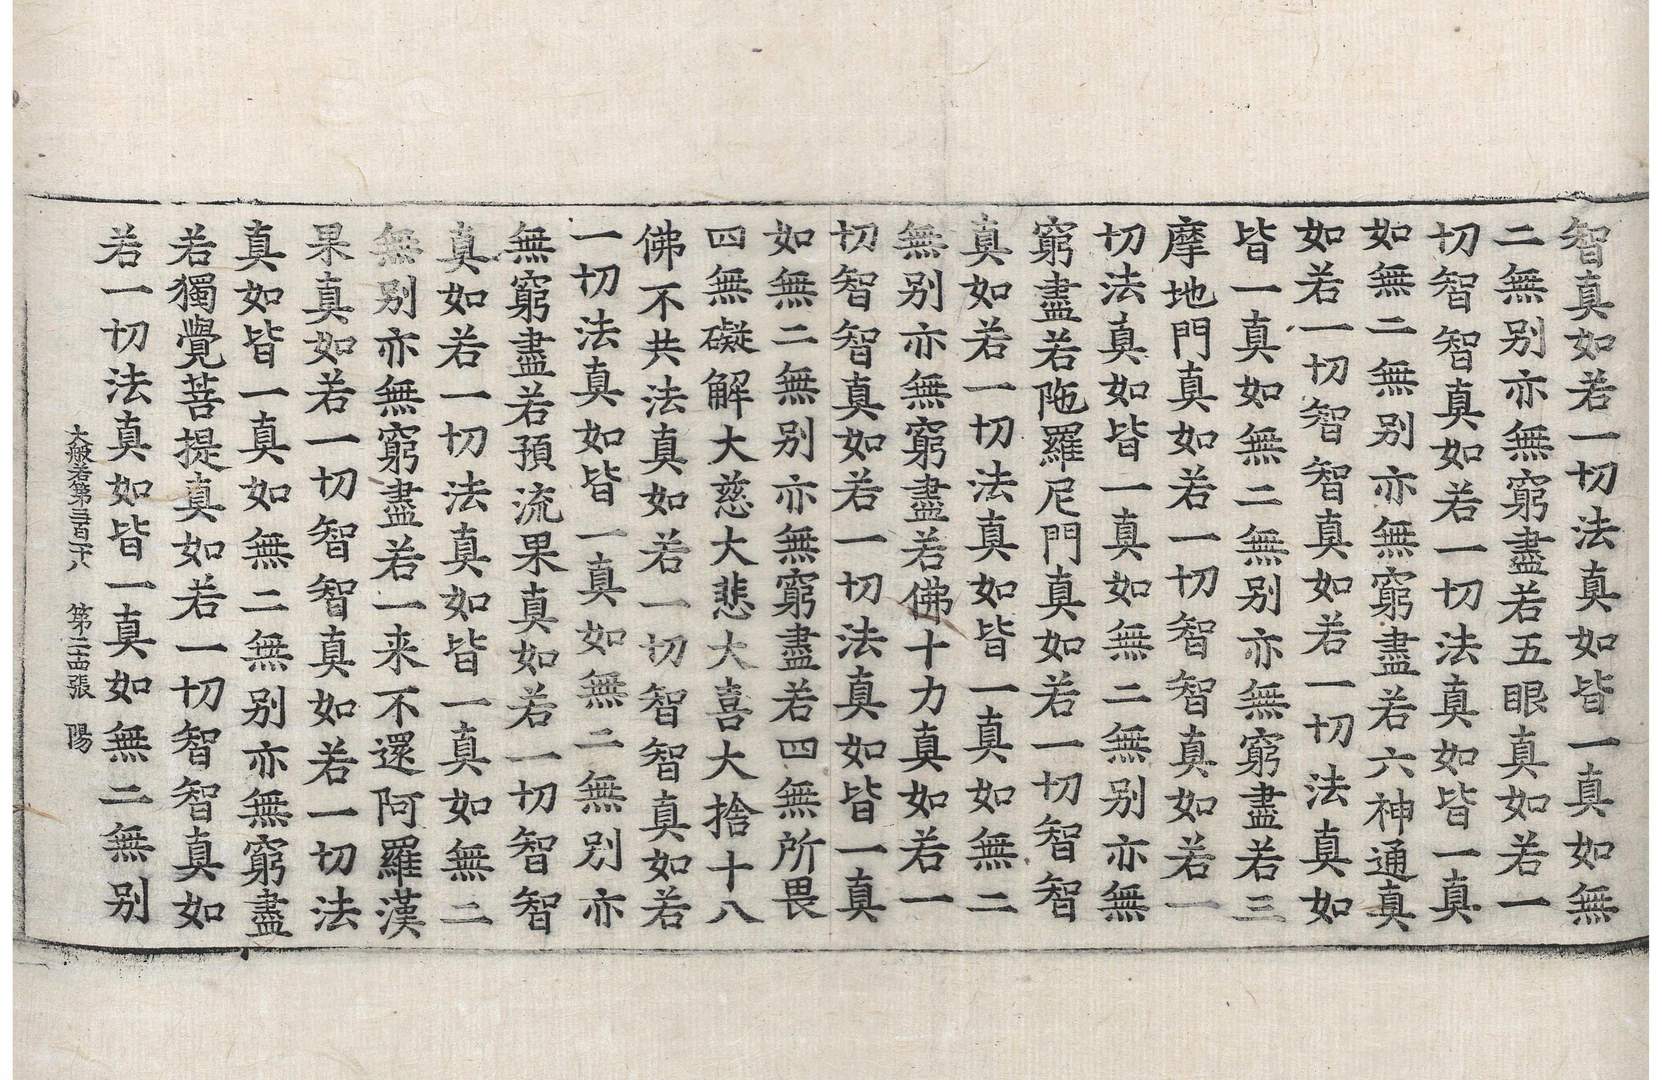 智真如若一切法真如皆一真如無
二無别亦無窮盡若五眼真如若一
切智智真如若一切法真如皆一真
如無二無别亦無窮盡若六神通真
如若一切智智真如若一切法真如
皆一真如無二無别亦無窮盡若三
摩地門真如若一切智智真如若一
切法真如皆一真如無二無别亦無
窮盡若陁羅尼門真如若一切智智
真如若一切法真如皆一真如無二
無别亦無窮盡若佛十力真如若一
切智智真如若一切法真如皆一真
如無二無别亦無窮盡若四無所畏
四無礙解大慈大悲大喜大捨十八
佛不共法真如若一切智智真如若
一切法真如皆一真如無二無别亦
無窮盡若預流果真如若一切智智
真如若一切法真如皆一真如無二
無别亦無窮盡若一来不還阿羅漢
果真如若一切智智真如若一切法
真如皆一真如無二無别亦無窮盡
若獨覺菩提真如若一切智智真如
若一切法真如皆一真如無二無别
大般若第三百一十八 第二十四張 陽